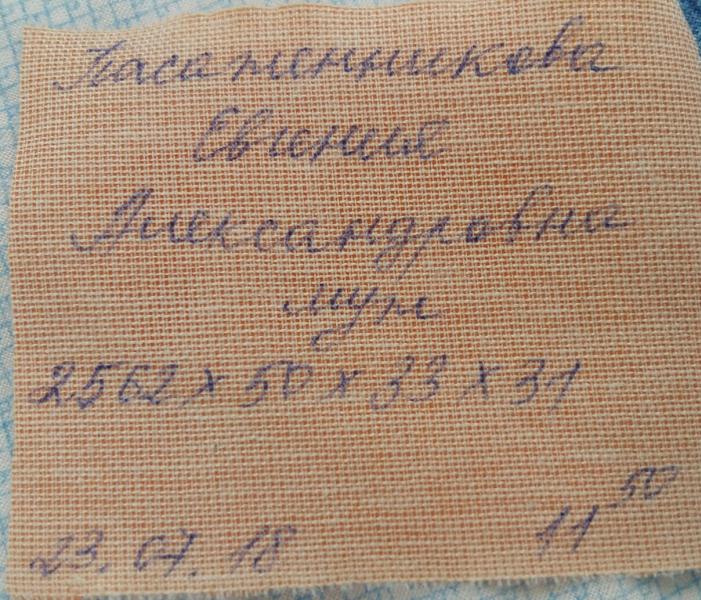 Пасаженникова
Евгиния
Александровна
муж
2562 х 50 х 33 х 31
23.07.18 11 50